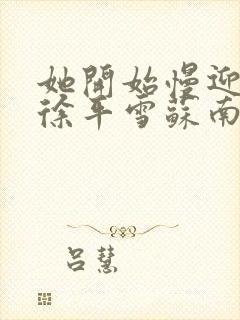 她開始慢迎
徐平雪蘇南
吕慧